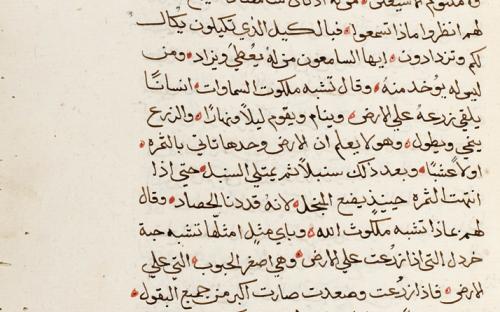 لهم انظروا ماذا تسمعوا فبالكيل الذي تكيلون يكال
لكم وتزدادون ايها السامعون من له يُعطى ويزاد ومن
ليس له يوخد منه وقال تشبه ملكوت السماوات انسانًا
يلقي زرعه علي الارض وينام ويقوم ليلاً ونهارًا والزرع
ينمي ويطول وهو لا يعلم ان الارض وحدها تاتي بالثمره
اولاً عشبًا وبعد ذلك سنبلاً ثم يمتلي السنبل حتي اذا
انتهت الثمرة حينيذٍ يضع المنجل لانه قد دنا الحصاد وقال
لهم بماذا تشبه ملكوت الله وباي مثلٍ امثلها تشبه حبة
خردل التي اذا زرعت علي الارض وهي اصغر الحبوب التي علي
الارض فاذا زرعت وصعدت صارت اكبر من جميع البقول